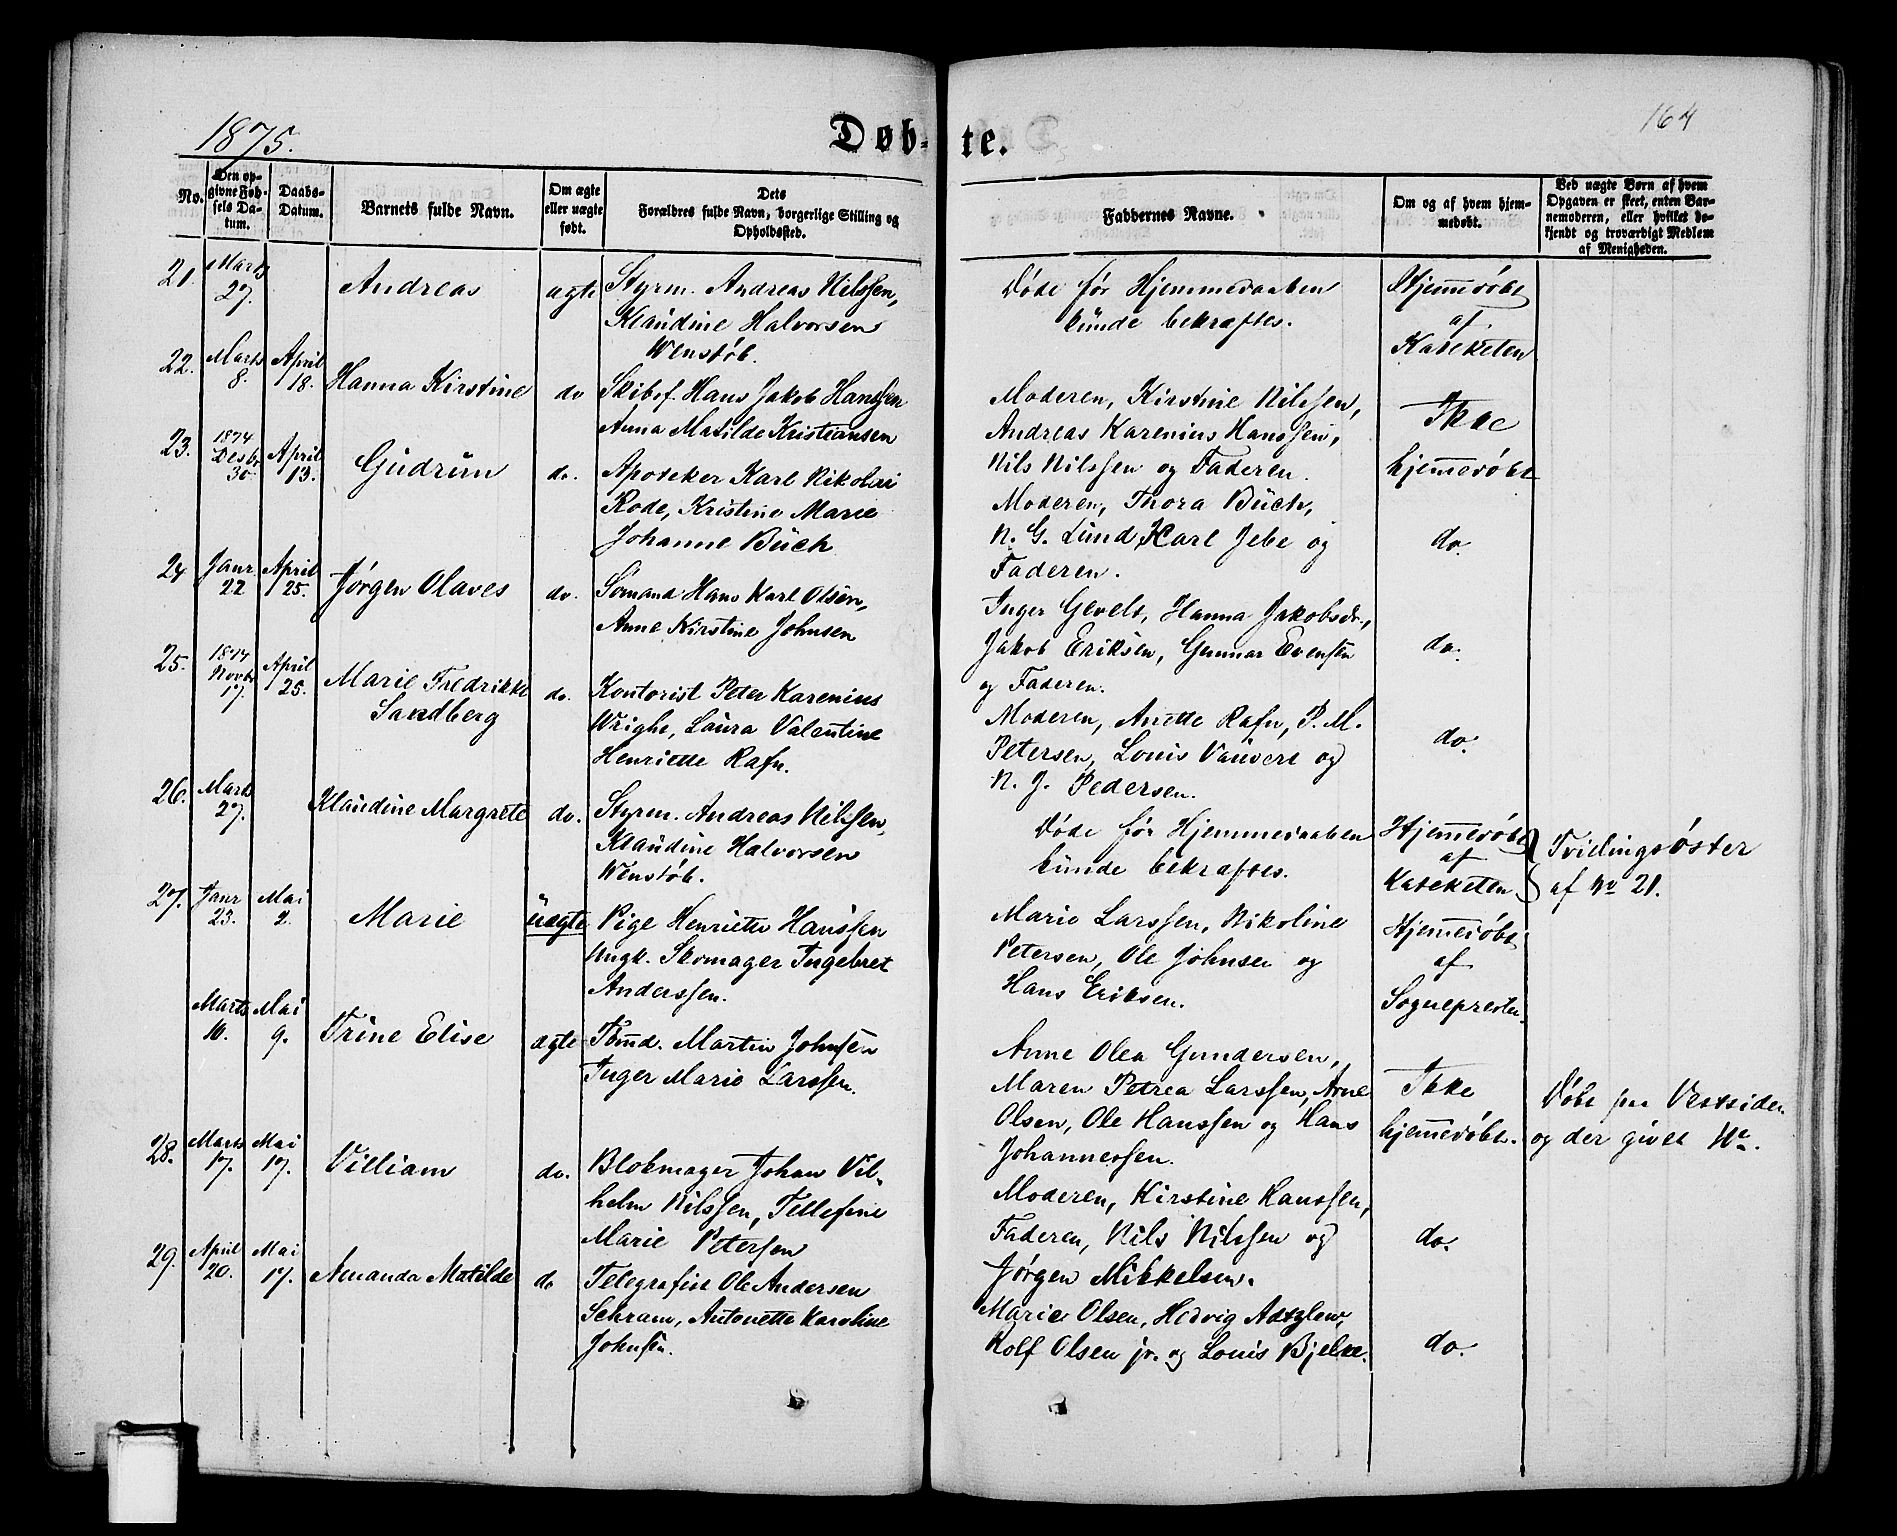 1875.
Døbte.
164
No.
Den opgivne Fødsels Datum.
Daabs-Datum.
Barnets fulde Navn.
Om ægte eller uægte født.
Dets Forældres fulde Navn, borgerlige Stilling og Opholdssted.
Faddernes Navne.
Om og af hvem hjemmedøbt.
Ved uægte Børn af hvem Opgaven er skeet, enten Barnemoderen, eller hvilket bekjendt og troværdigt Medlem af Menigheden.
21. Marts 27. Andreas ægte Styrm. Andreas Nilssen,
Klaudine Halvorsen
Wenstøb.
Døde før Hjemmedaaben
kunde bekræftes.
Hjemmedøbt
af
Kateketen
22. Marts 8. April 18. Hanna Kirstine do Skibsf. Hans Jakob Hanssen
Anna Matilde Kristiansen
Moderen, Kirstine Nilssen,
Andreas Karenius Hanssen,
Nils Nilssen og Faderen.
Ikke
hjemmedøbt
23. 1874 Desbr 30. April 13. Gudrun do. Apoteker Karl Nikolai
Rode, Kristine Marie
Johanne Buch
Moderen, Thora Buch,
N. G. Lund, Karl Jebe og
Faderen.
do.
24 Janr 22 April 25. Jørgen Olaves do. Sømand Hans Karl Olsen,
Anne Kirstine Johnsen
Inger Gevelt, Hanna Jakobsdr.,
Jakob Eriksen, Gunnar Evensen
og Faderen.
do.
25. 1874 Novbr 17. April 25. Marie Fredrikke
Sandberg
do. Kontorist Peter Karenius
Wright, Laura Valentine
Henriette Rafn.
Moderen, Anette Rafn, P. M.
Petersen, Louis Vauvert og
N. J. Pedersen.
do.
26. Marts 27. Klaudine Margrete do. Styrm. Andreas Nilssen,
Klaudine Halvorsen
Wenstøb.
Døde før Hjemmedaaben
kunde bekræftes.
Hjemmedøbt
af
Kateketen.
Tvillingsøster
af No 21.
27. Janr 23. Mai 2. Marie uægte Pige Henriette Hanssen
Ungk. Skomager Ingebret
Anderssen.
Marie Larssen, Nikoline
Petersen, Ole Johnsen og
Hans Eriksen.
Hjemmedøbt
af
Sognepresten.
Marts 10. Mai 9. Trine Elise ægte Tømd. Martin Johnsen
Inger Marie Larssen.
Anne Olea Gundersen,
Maren Petrea Larssen, Arne
Olsen, Ole Hanssen og Hans
Johannessen.
Ikke
hjemmedøbt.
Døbt paa Vestsiden
og der givet No.
28. Marts 17. Mai 17. Villiam do. Blokmager Johan Vil-
helm Nilssen, Tellefine
Marie Petersen
Moderen, Kirstine Hanssen,
Faderen, Nils Nilssen og
Jørgen Mikkelsen.
do.
29. April 20. Mai 17. Amanda Matilde do Telegrafist Ole Andersen
Schram, Antonette Karoline
Johnsen.
Marie Olsen, Hedvig
Rolf Olsen jr. og Louis Bjelke.
do.